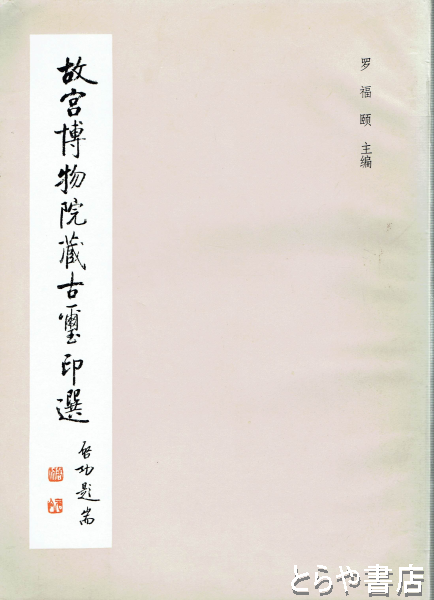 罗福颐 主编
故宫博物院藏古璽印選
启功題耑
とらや書店